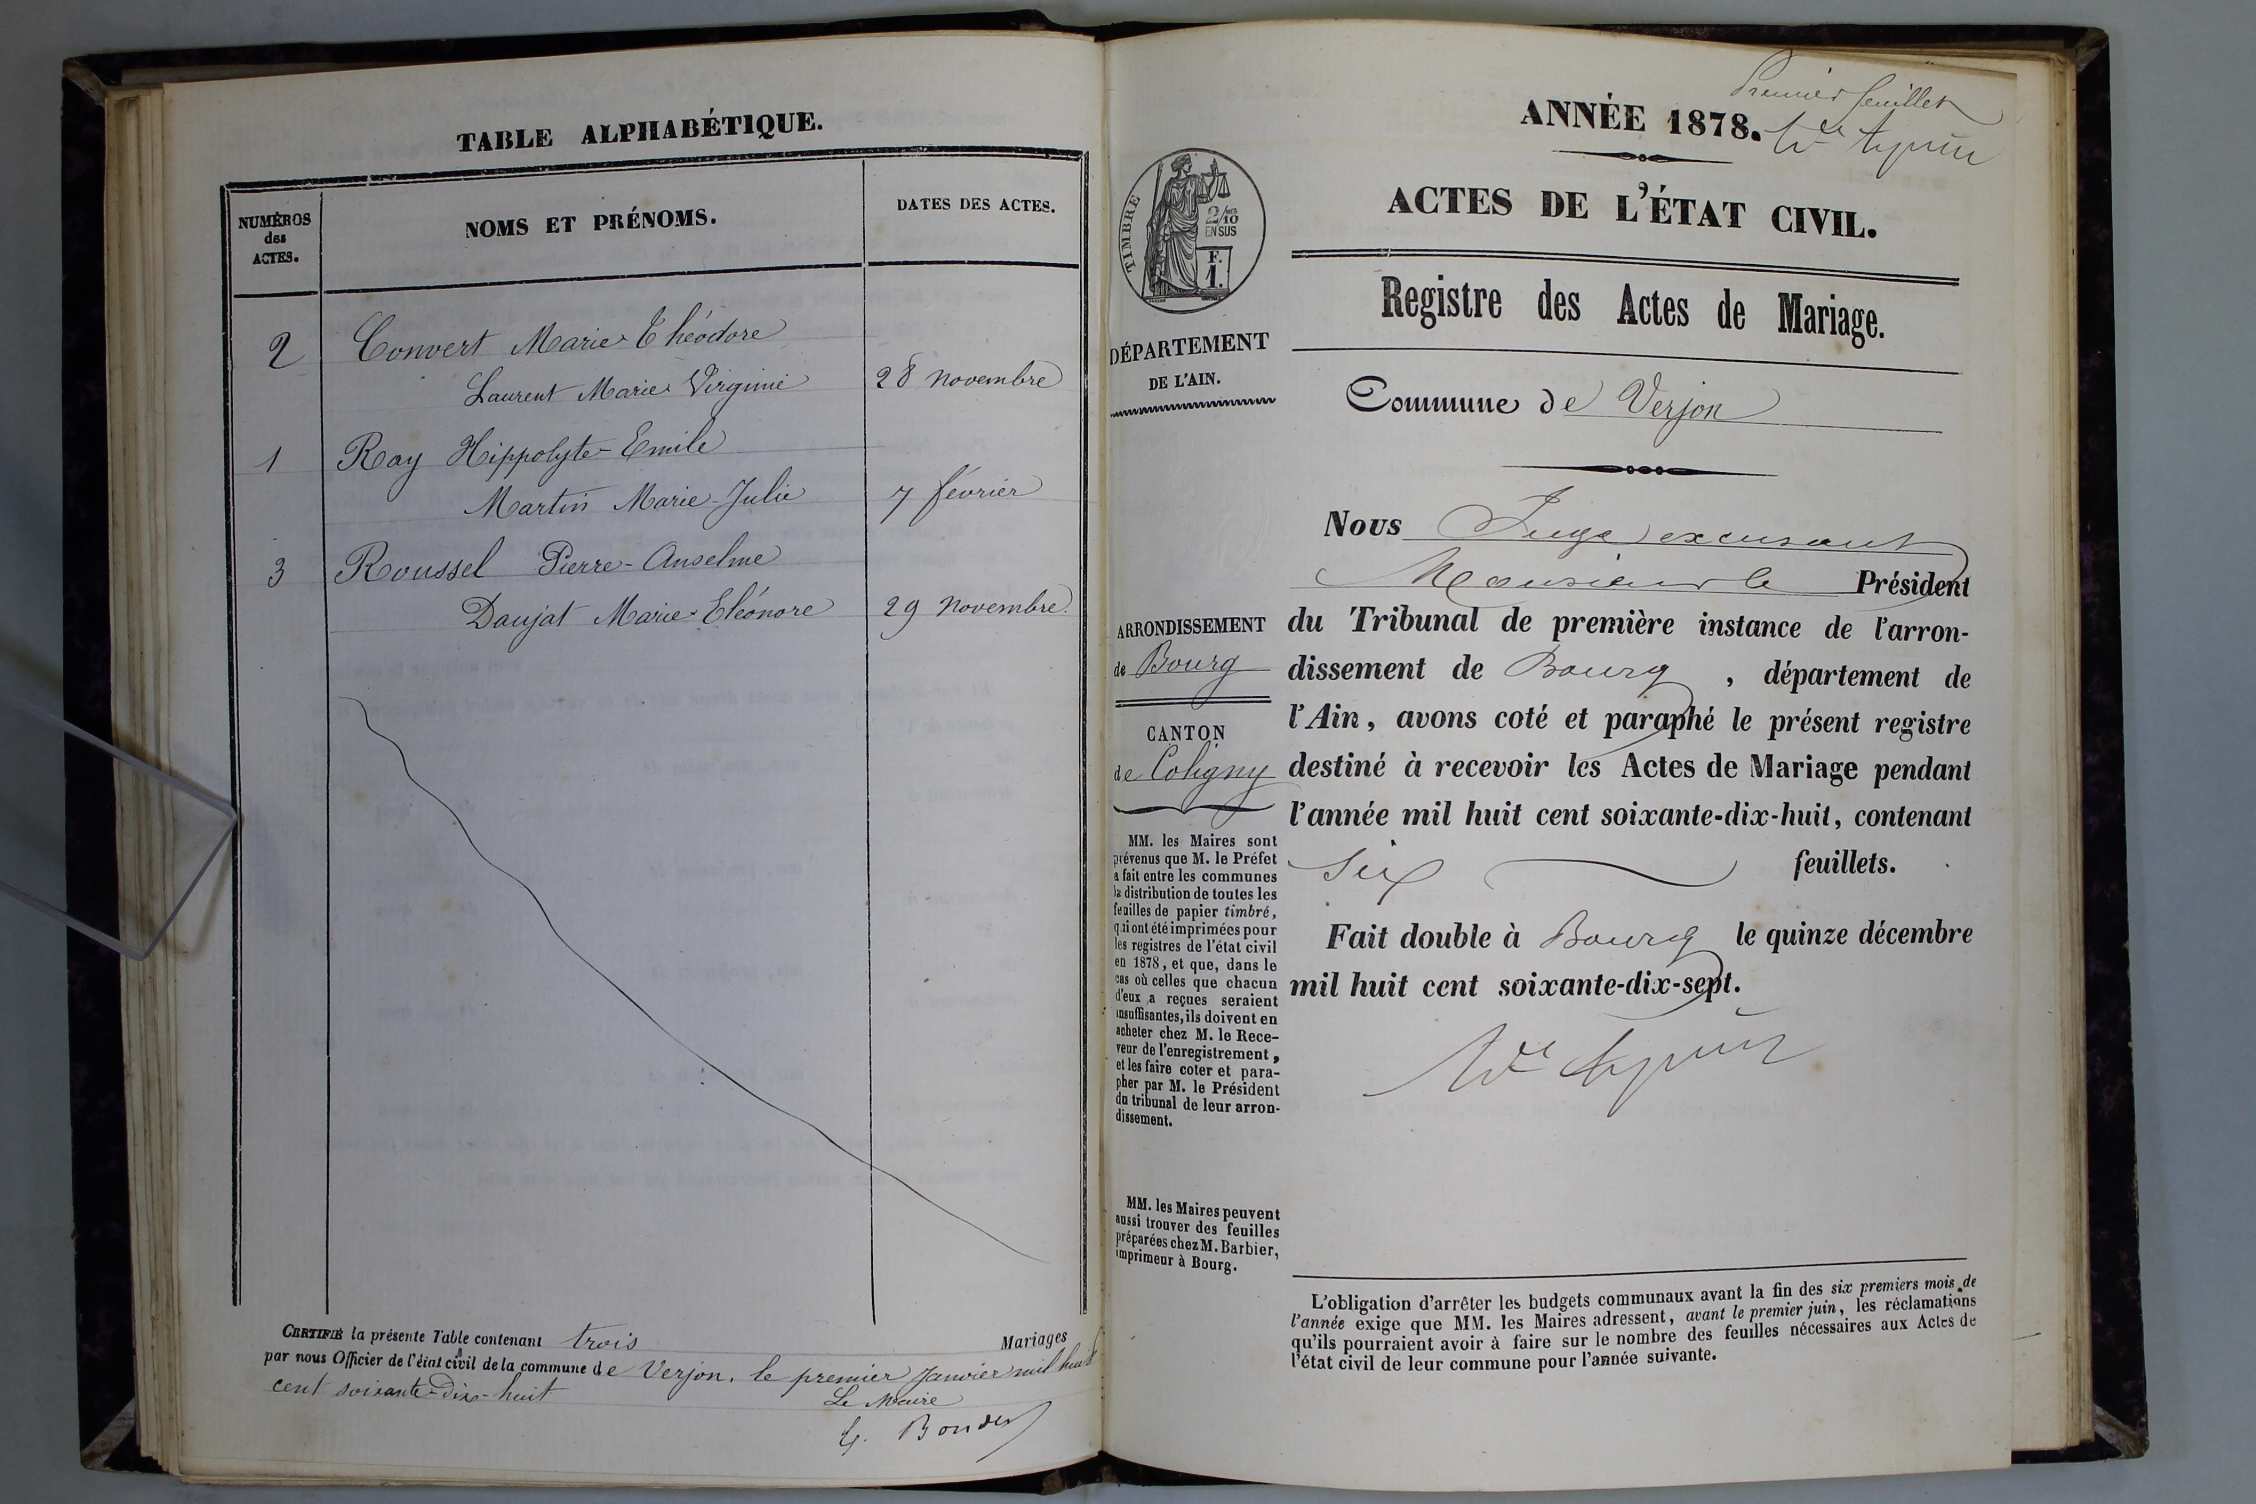 TABLE ALPHABÉTIQUE.
NUMÉROS
des
ACTES.
NOMS ET PRÉNOMS.
DATES DES ACTES.
2 Convert Marie-Théodore
Laurent Marie Virginie 28 novembre
1 Ray Hippolyte-Emile
Martin Marie-Julie 7 février
3 Roussel Pierre-Anselme
Daujat Marie-Eléonore 29 novembre.
CERTIFIÉ la présente Table contenant trois Mariages
par nous Officier de l'état civil de la commune de Verjon, le premier Janvier mil huit
cent soixante-dix-huit
Le Maire
Premier feuillet
ANNÉE 1878.
ACTES DE L'ÉTAT CIVIL.
Registre des Actes de Mariage.
Commune de Verjon
TIMBRE
2/10
EN SUS
F.
1.
DÉPARTEMENT
DE L'AIN.
ARRONDISSEMENT
de Bourg
CANTON
de Coligny
MM. les Maires sont
prévenus que M. le Préfet
a fait entre les communes
la distribution de toutes les
feuilles de papier timbré,
qui ont été imprimées pour
les registres de l'état civil
en 1878, et que, dans le
cas où celles que chacun
d'eux a reçues seraient
insuffisantes, ils doivent en
acheter chez M. le Rece-
veur de l'enregistrement,
et les faire coter et para-
pher par M. le Président
du tribunal de leur arron-
dissement.
MM. les Maires peuvent
aussi trouver des feuilles
préparées chez M. Barbier,
imprimeur à Bourg.
Nous Juge excusant
Monsieur le Président
du Tribunal de première instance de l'arron-
dissement de Bourg, département de
l'Ain, avons coté et paraphé le présent registre
destiné à recevoir les Actes de Mariage pendant
l'année mil huit cent soixante-dix-huit, contenant
six feuillets.
Fait double à Bourg le quinze décembre
mil huit cent soixante-dix-sept.
L'obligation d'arrêter les budgets communaux avant la fin des six premiers mois de
l'année exige que MM. les Maires adressent, avant le premier juin, les réclamations
qu'ils pourraient avoir à faire sur le nombre des feuilles nécessaires aux Actes de
l'état civil de leur commune pour l'année suivante.